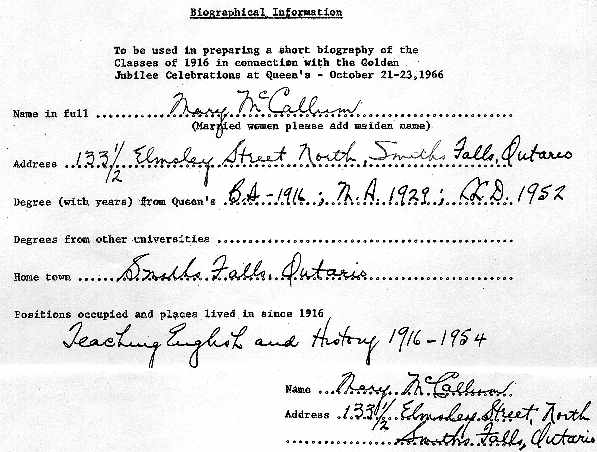 Biographical Information
To be used in preparing a short biography of the
Classes of 1916 in connection with the Golden
Jubilee Celebrations at Queen's - October 21-23,1966
Name in full Mary McCallum
(Married women please add maiden name)
Address 133 1/2 Elmsley Street North, Smiths Falls, Ontario
Degree (with years) from Queen's B.A-1916; M.A. 1929; LL.D. 1952
Degrees from other universities
Home town Smiths Falls, Ontario
Positions occupied and places lived in since 1916
Teaching English and History 1916-1954
Name Mary McCallum
Address 133 1/2 Elmsley Street, North
Smiths Falls, Ontario